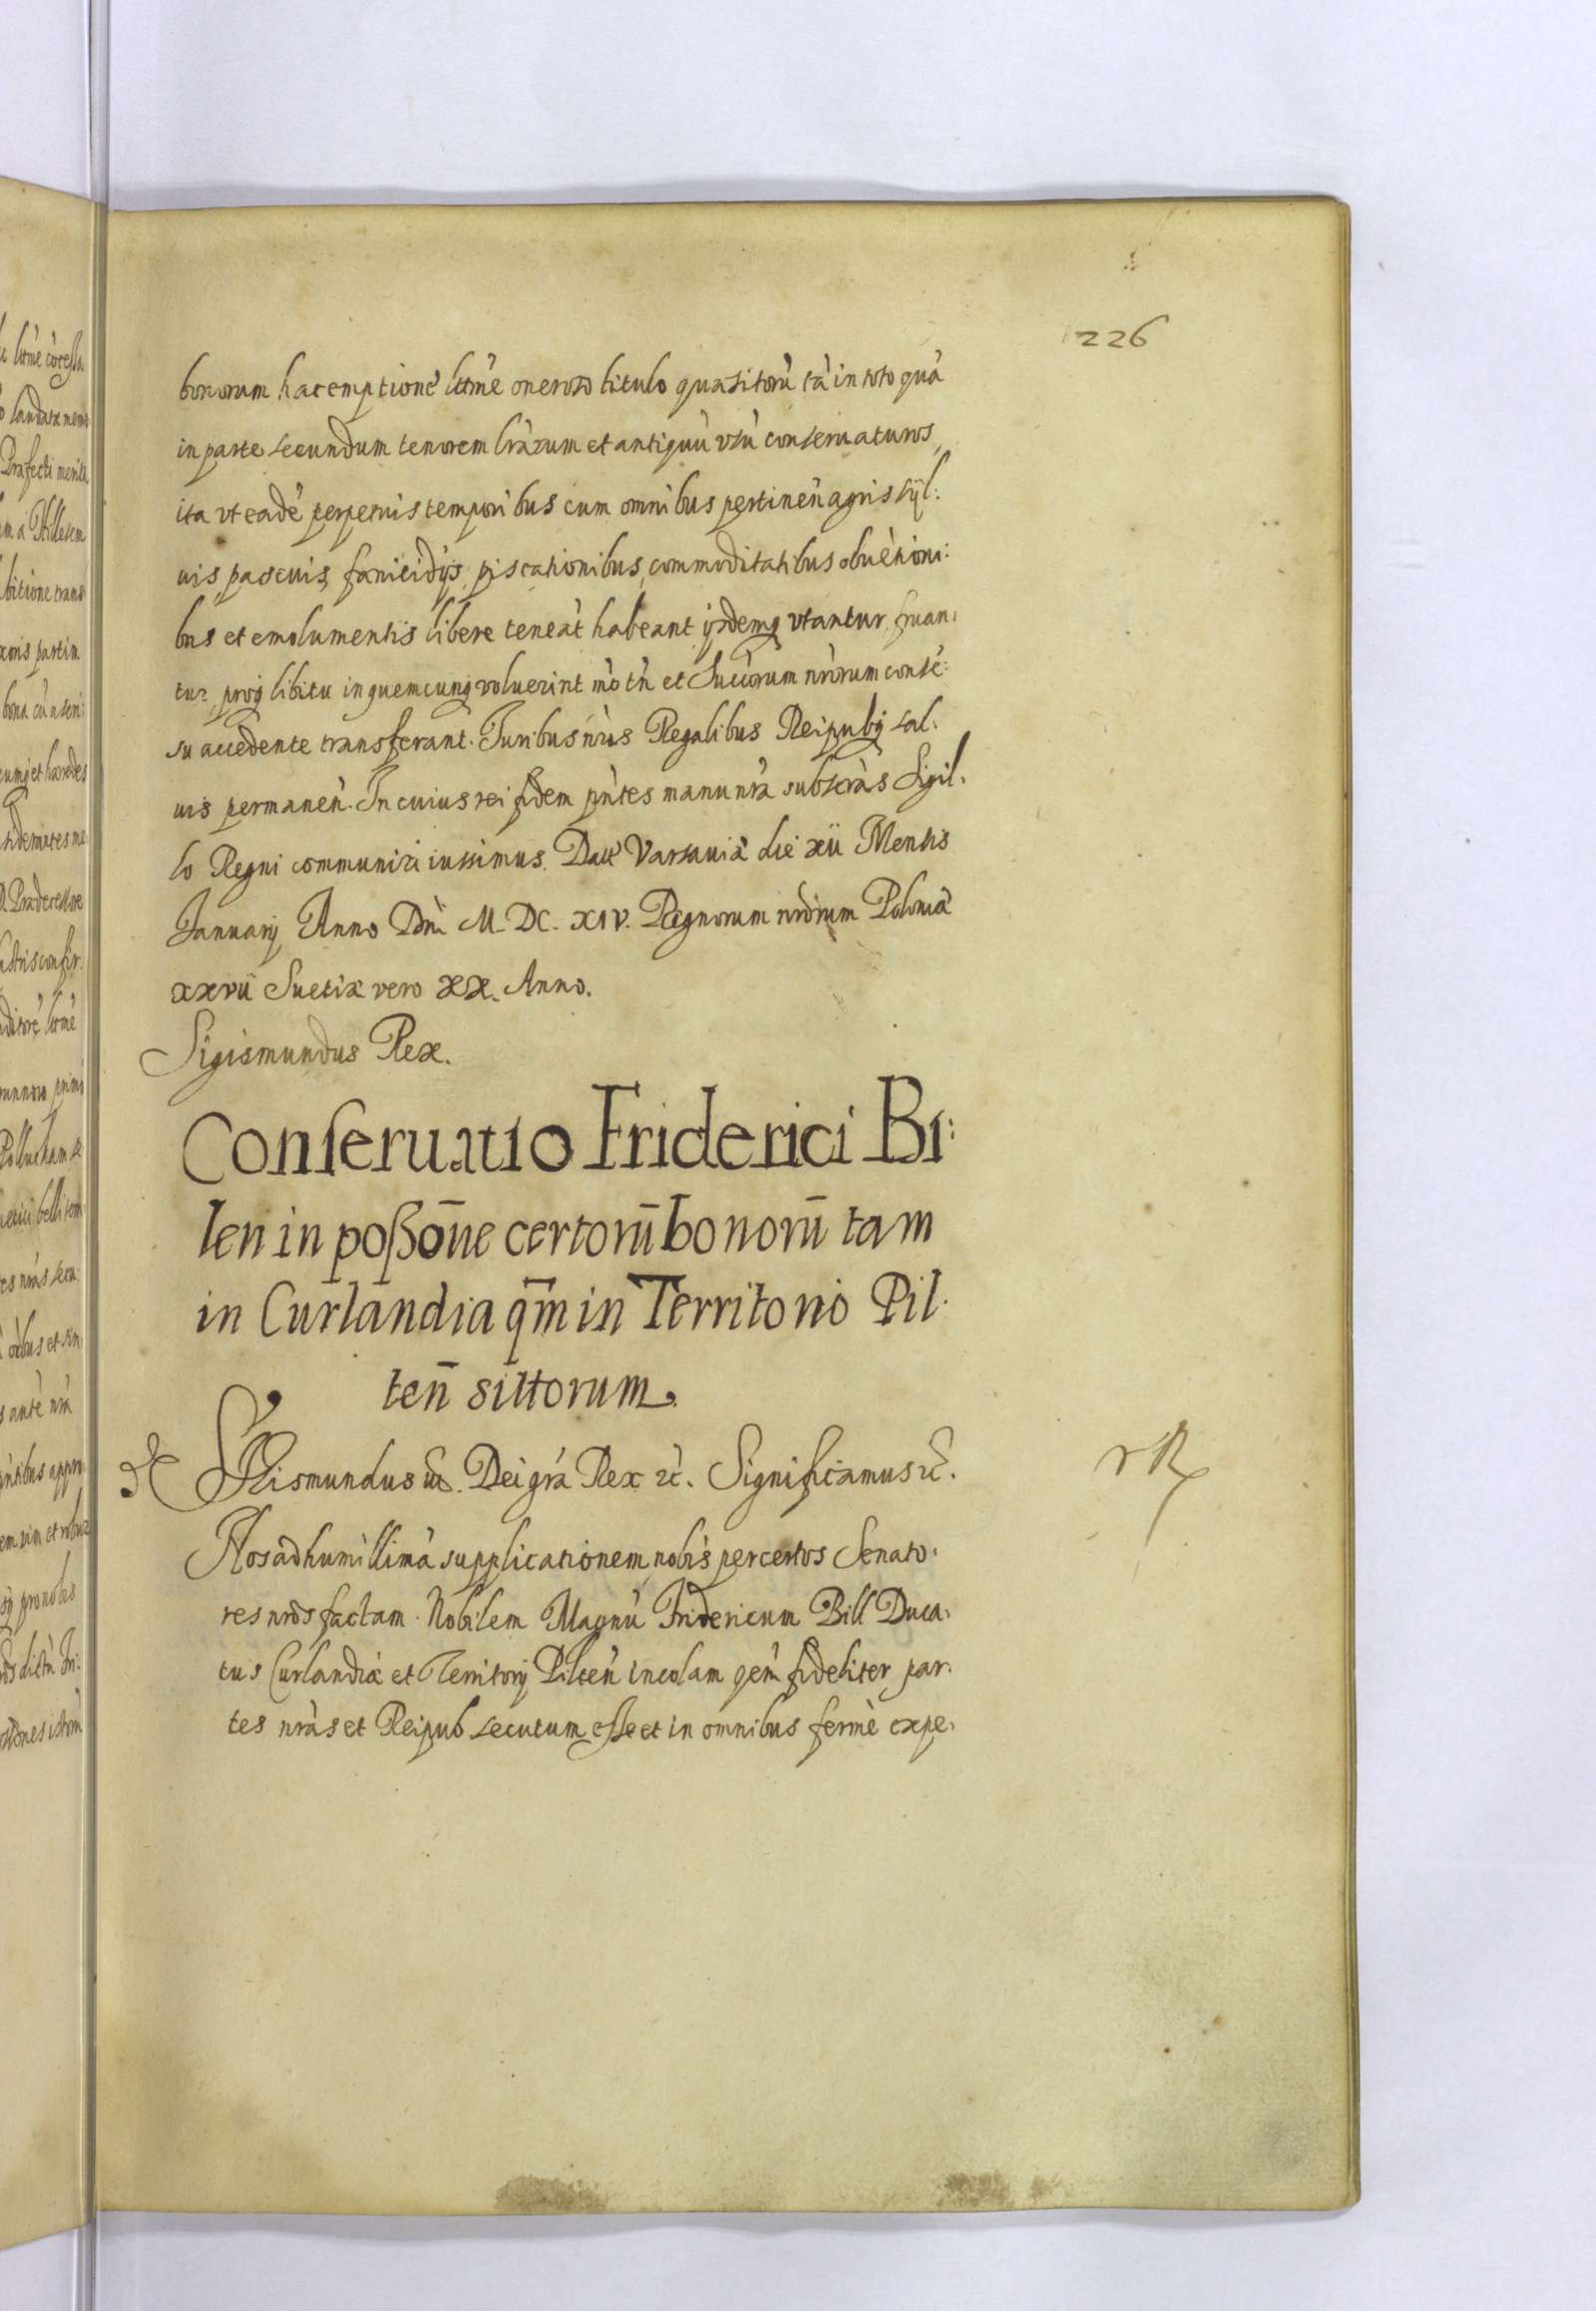 226
bonorum hac emptione lttme oneroso titulo quæsitorũ tã in toto quã
in parte secundum tenorem lrãrum et antiquũ vsũ conseruaturos,
ita vt eadẽ perpetuis temporibus cum omnibus pertineñ agris syl:
uis, pascuis, fænicidijs, piscationibus, commoditatibus obuẽtioni:
bus et emolumentis libere teneãt habeant ijsdemq vtantur fruan:
tur, proq libitu in quemcunq voluerint nrõ tñ et Succorum nrõrum consẽ:
su accedente transferant. Iuribus nrĩs Regalibus Reipubq sal:
uis permaneñ. In cuius rei fidem pñtes manu nrã subscrãs Sigil:
lo Regni communiri iussimus. Datt Varsauiæ die xii Mensis
Ianuarij Anno Dñi M. DC. XIV. Regnorum nrõrum Poloniæ
xxvii Suetiæ vero XX. Anno.
Sigismundus Rex.
Conseruatio Friderici Bi:
len in poßoñe certorũ bonorũ tam
in Curlandia qm̃ in Territorio Pil.
teñ sittorum.
Sigismundus iii. Dei grã Rex ꝛc. Significamus ꝛc.
rR
Nos ad humillimã supplicationem nobis per certos Senato:
res nrõs factam. Nobilem Magnũ Fridericum Bill Duca:
tus Curlandiæ et Territorij Pilteñ incolam qem̃ fideliter par:
tes nrãs et Reipub secutum esse et in omnibus fermè expe: